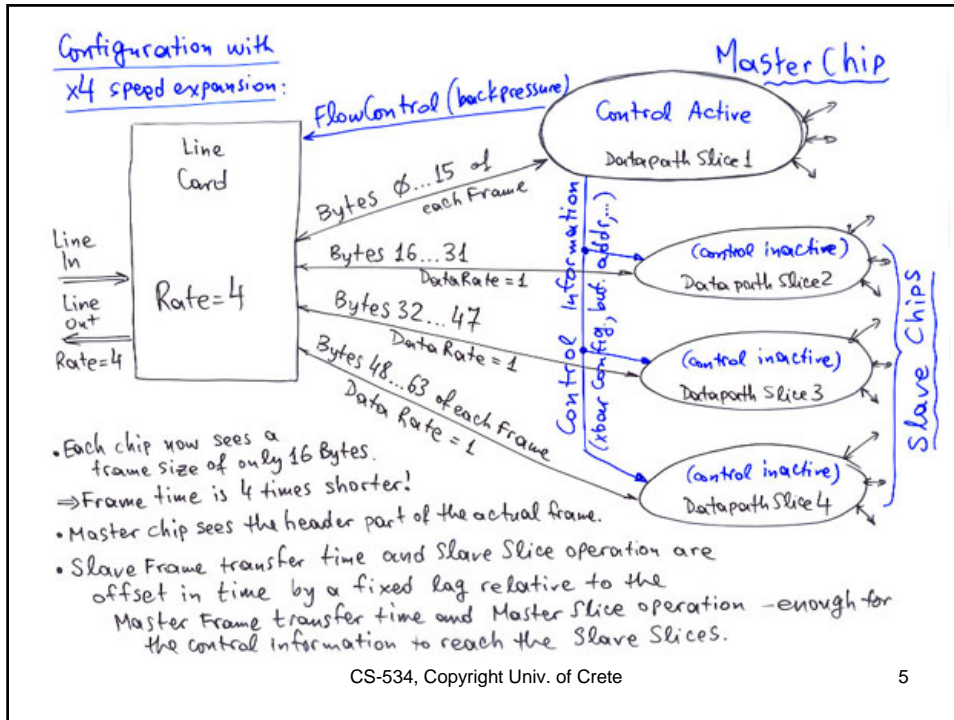 Configuration with
x4 speed expansion:
Master Chip
FlowControl (backpressure)
Control Active
Datapath Slice 1
Line
Card
Bytes 0...15 of
each Frame
Line
In
Line
Out
Rate=4
Rate=4
Bytes 16...31
Data Rate = 1
Bytes 32...47
Data Rate = 1
Bytes 48...63 of each Frame
Data Rate = 1
Control Information
(xbar config., buf. addr,...)
(control inactive)
Datapath Slice 2
(control inactive)
Datapath Slice 3
(control inactive)
Datapath Slice 4
Slave Chips
• Each chip now sees a
frame size of only 16 Bytes.
⇒ Frame time is 4 times shorter!
• Master chip sees the header part of the actual frame.
• Slave Frame transfer time and Slave Slice operation are
offset in time by a fixed lag relative to the
Master Frame transfer time and Master Slice operation - enough for
the control information to reach the Slave Slices.
CS-534, Copyright Univ. of Crete
5